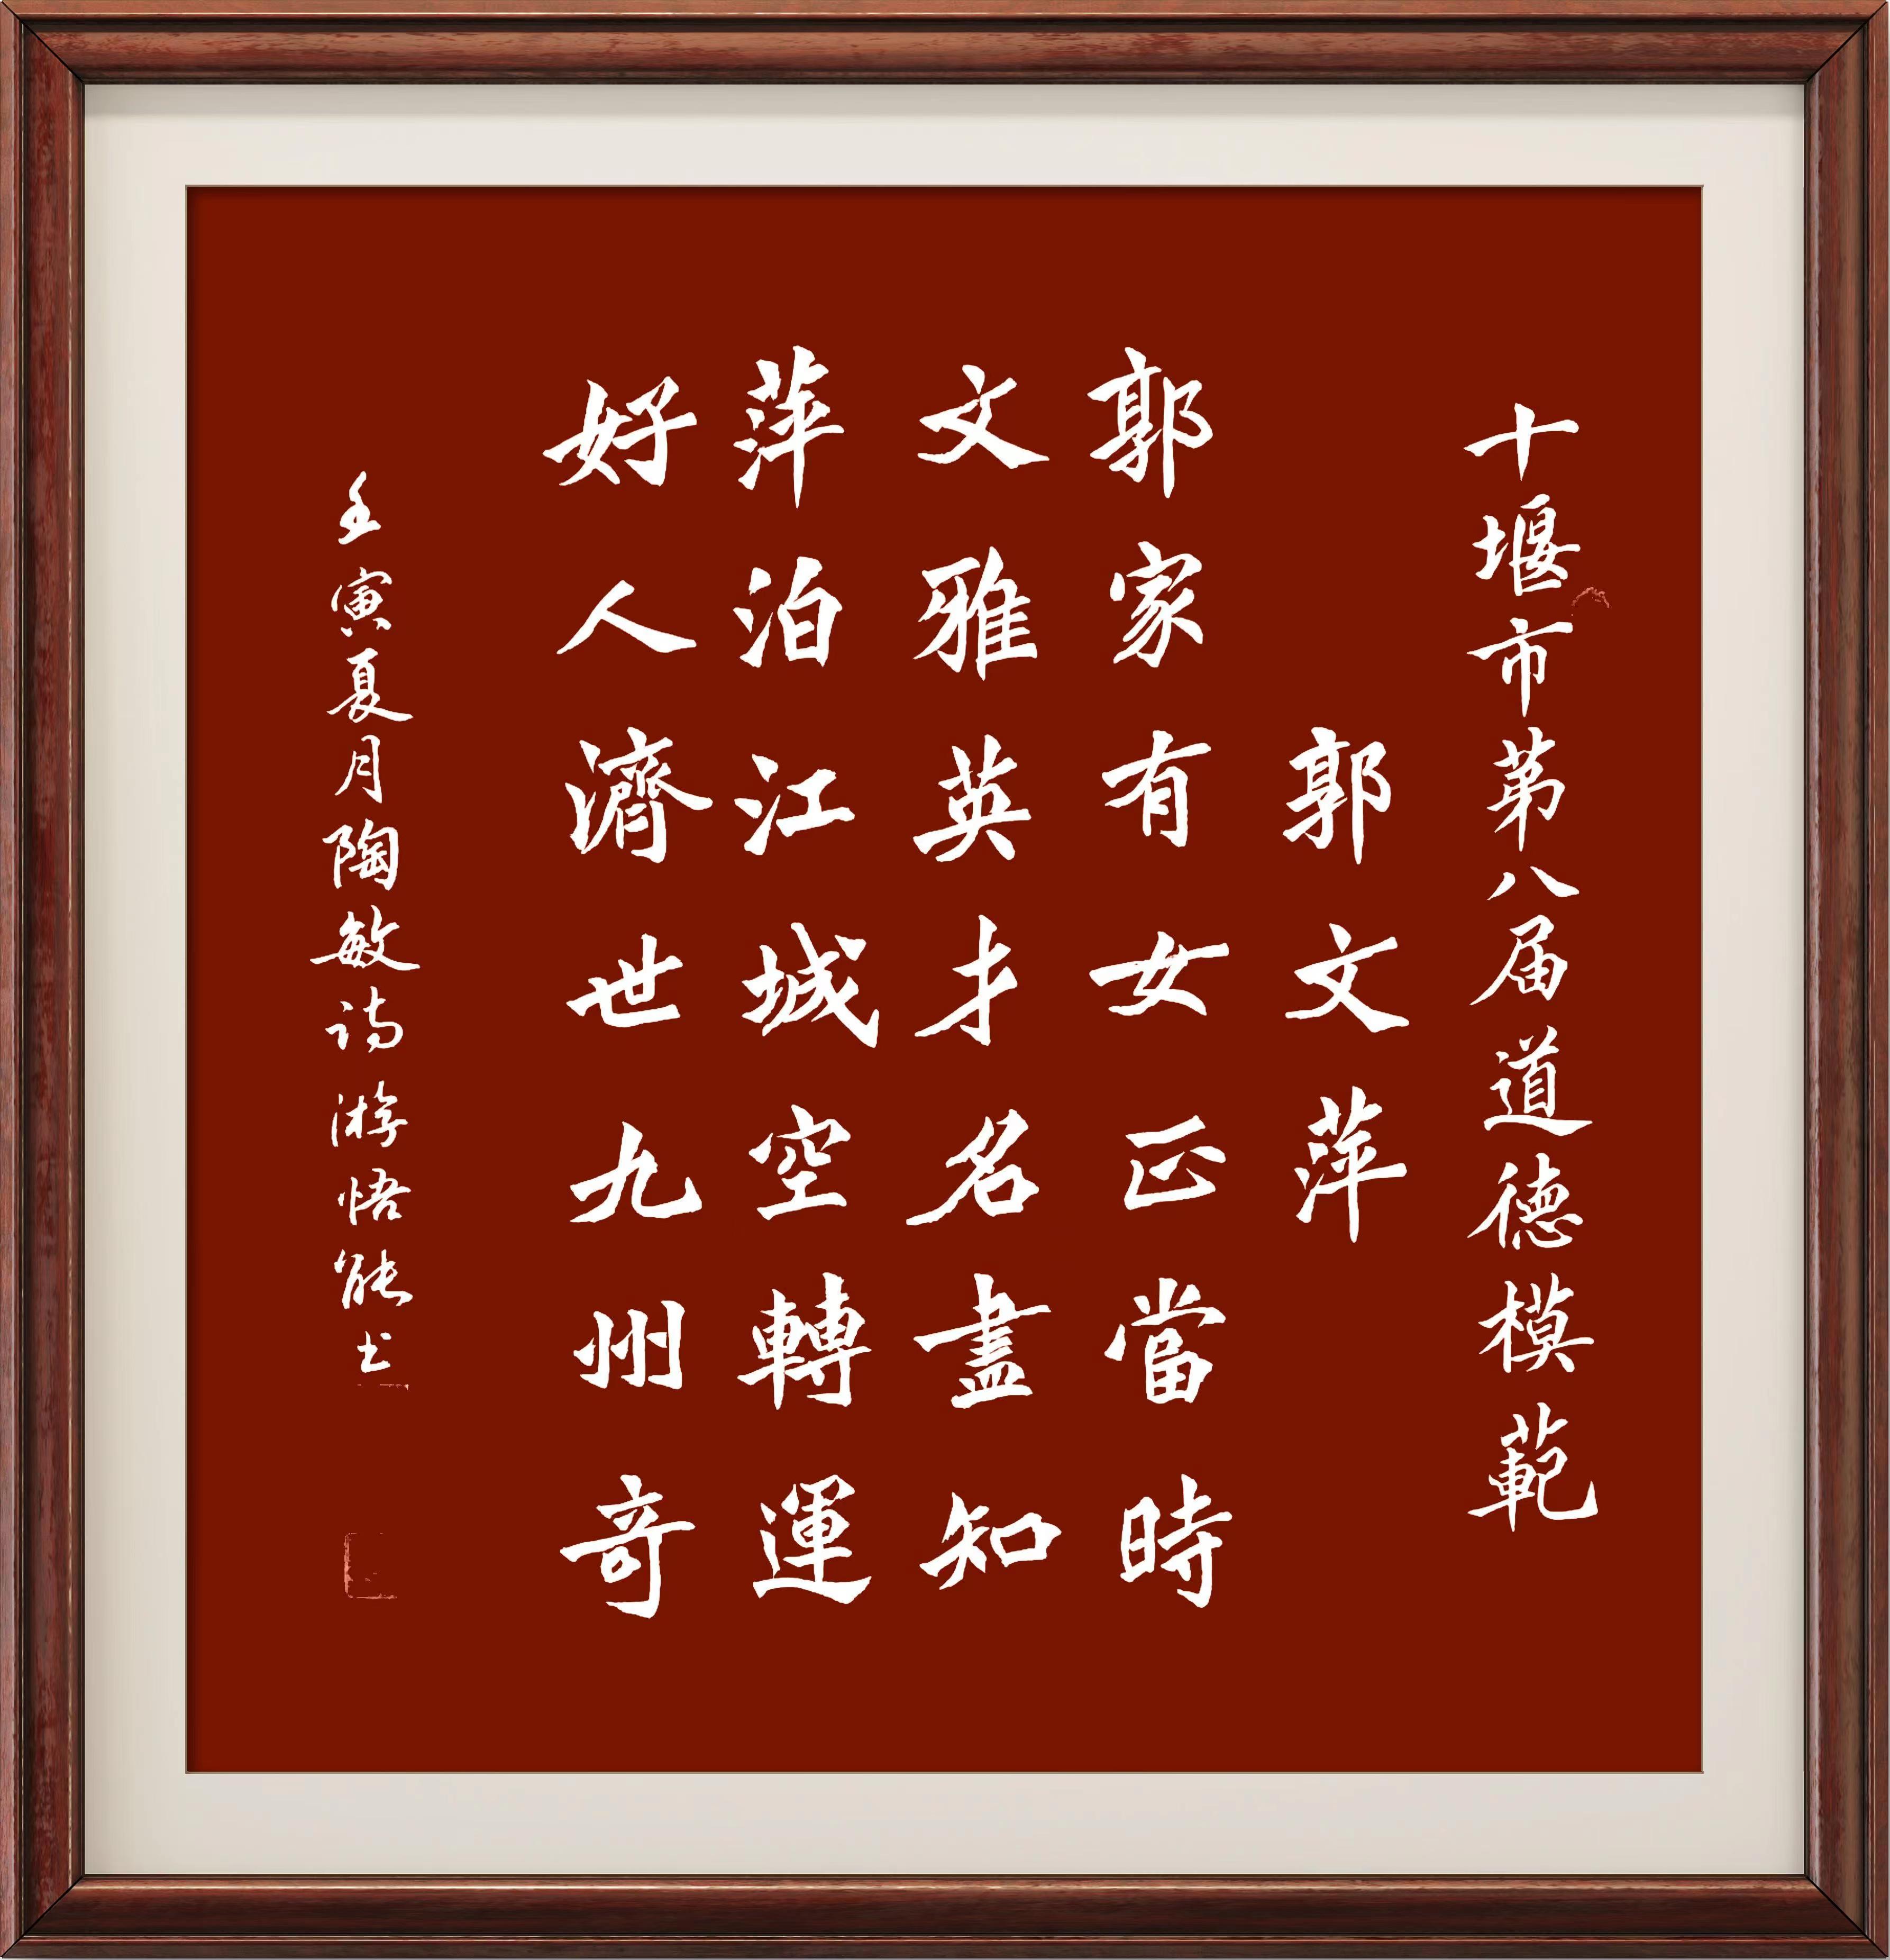 十堰市第八届道德模範
郭文萍
郭家有女正當時
文雅英才名盡知
萍泊江城空轉運
好人濟世九州奇
壬寅夏月陶敏诗游悟能书